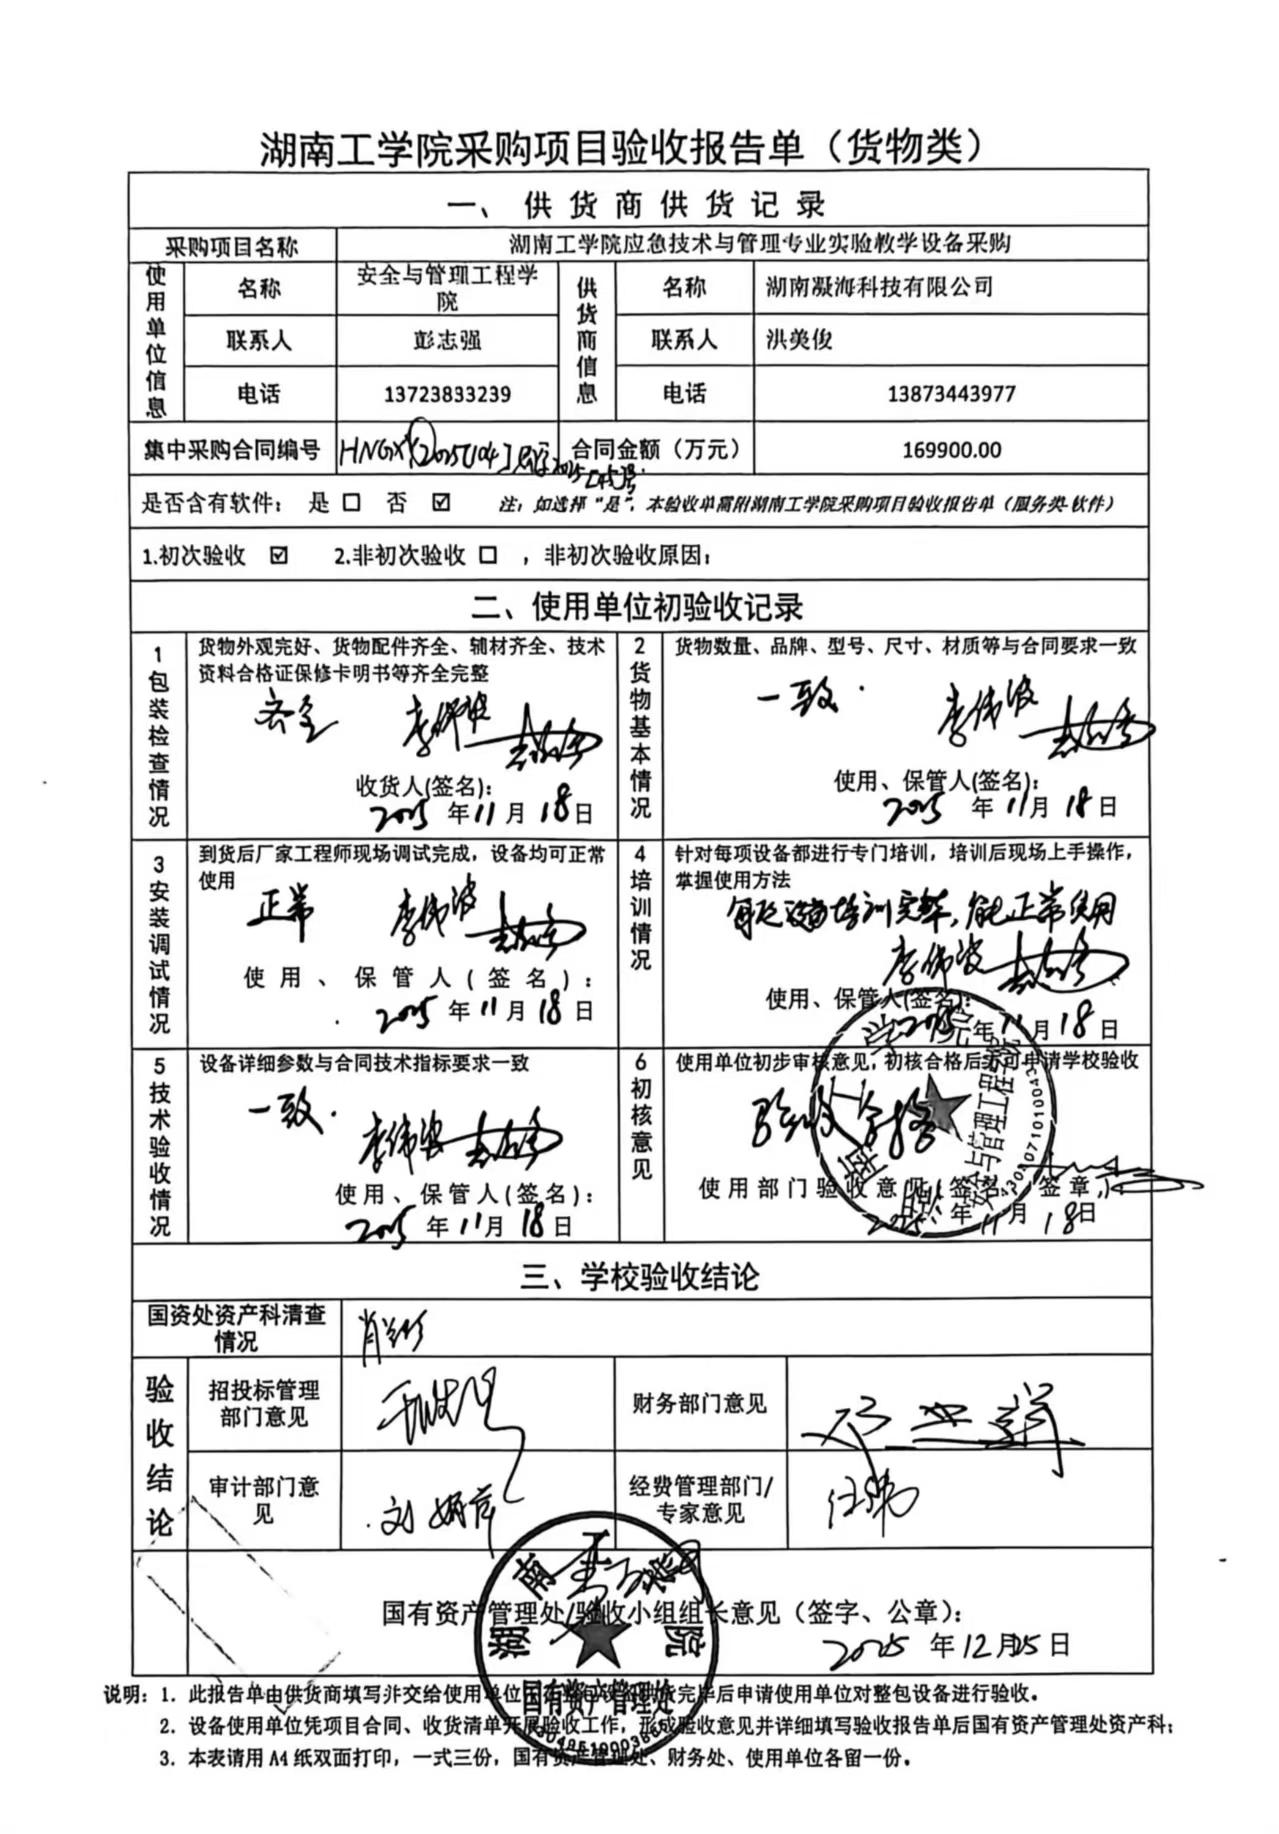 湖南工学院采购项目验收报告单（货物类）
一、供货商供货记录
采购项目名称 湖南工学院应急技术与管理专业实验教学设备采购
使用单位信息 名称 安全与管理工程学院 供货商信息 名称 湖南凝海科技有限公司
联系人 彭志强 联系人 洪美俊
电话 13723833239 电话 13873443977
集中采购合同编号 合同金额（万元） 169900.00
是否含有软件： 是 □ 否 ☑ 注：如选择“是”，本验收单需附湖南工学院采购项目验收报告单（服务类-软件）
1.初次验收 ☑ 2.非初次验收 □ ，非初次验收原因：
二、使用单位初验收记录
1包装检查情况 货物外观完好、货物配件齐全、辅材齐全、技术
资料合格证保修卡明书等齐全完整
齐全 李伟波
收货人(签名)：
2025年11月18日
2货物基本情况 货物数量、品牌、型号、尺寸、材质等与合同要求一致
一致. 李伟波
使用、保管人(签名)：
2025年11月18日
3安装调试情况 到货后厂家工程师现场调试完成，设备均可正常
使用
正常 李伟波
使用、保管人(签名)：
2025年11月18日
4培训情况 针对每项设备都进行专门培训，培训后现场上手操作，
掌握使用方法
设备培训完毕，能正常使用
李伟波
使用、保管人(签名)：
2025年11月18日
5技术验收情况 设备详细参数与合同技术指标要求一致
一致. 李伟波
使用、保管人(签名)：
2025年11月18日
6初核意见 使用单位初步审核意见，初核合格后方可申请学校验收
验收合格
使用部门验收意见(签名、签章)：
2025年11月18日
湖南工学院
安全与管理工程学院
三、学校验收结论
国资处资产科清查
情况
验收结论 招投标管理
部门意见
财务部门意见
审计部门意
见
刘娟萍
经费管理部门/
专家意见
任巍
国有资产管理处/验收小组组长意见（签字、公章）：
2025年12月25日
湖南工学院
国有资产管理处
说明：1. 此报告单由供货商填写并交给使用单位
完毕后申请使用单位对整包设备进行验收。
2. 设备使用单位凭项目合同、收货清单开展验收工作，形成验收意见并详细填写验收报告单后国有资产管理处资产科；
3. 本表请用 A4 纸双面打印，一式三份，国有资产管理处、财务处、使用单位各留一份。